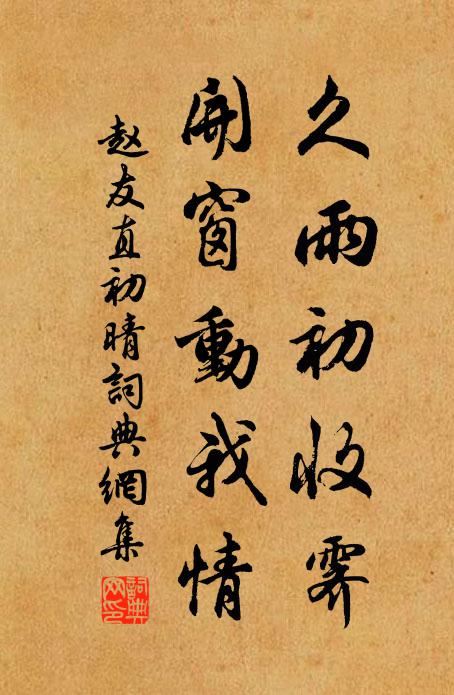 久雨初收霁
開窗動我情
赵友直初晴詞典網集
詞典网印